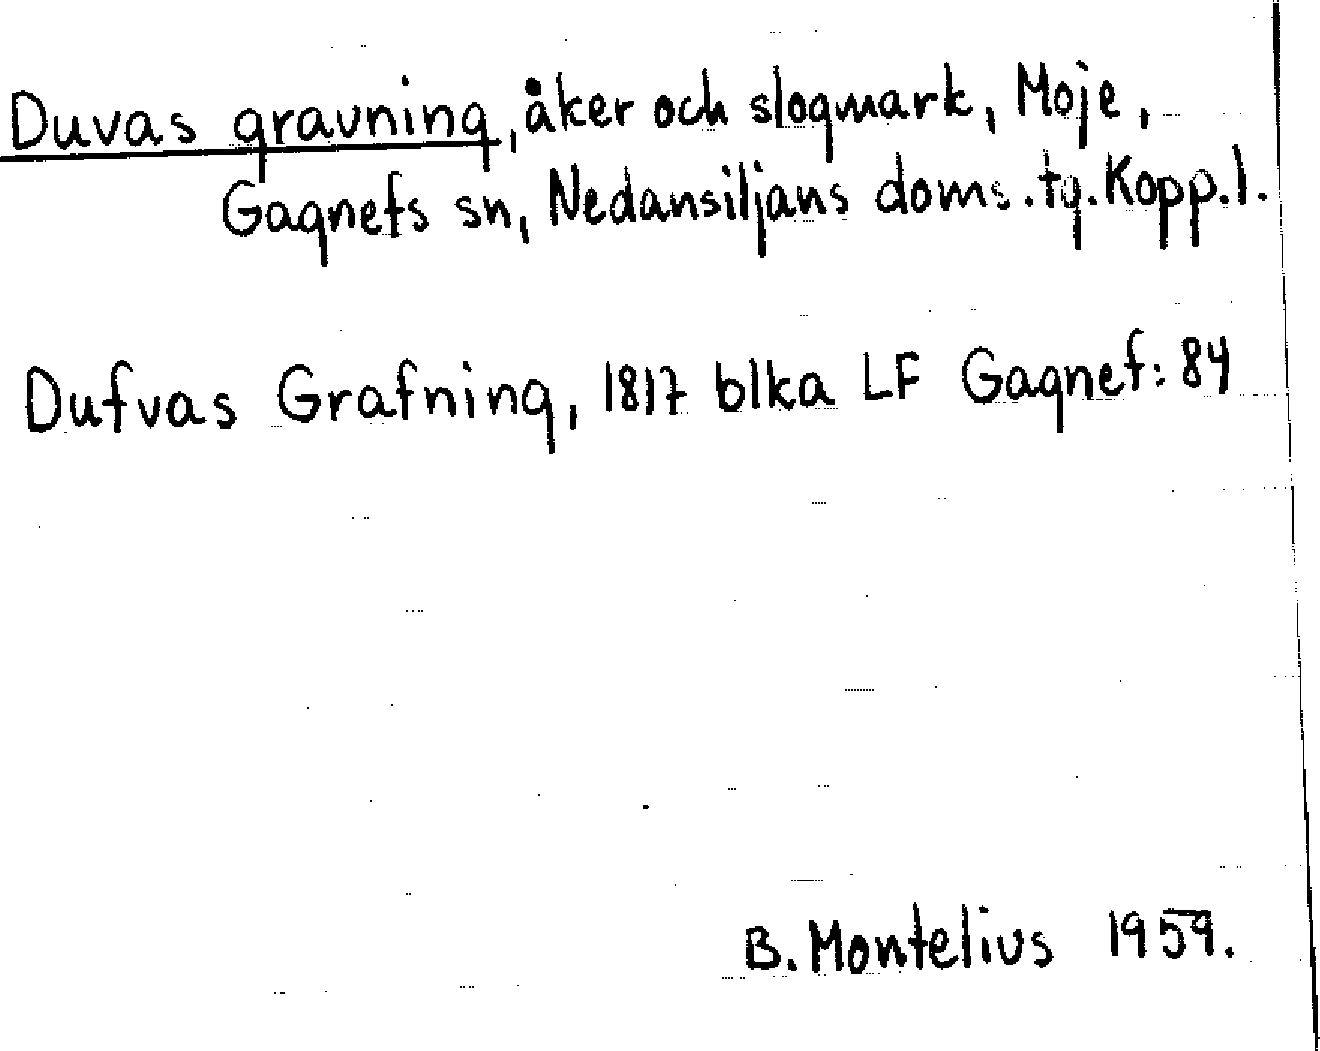 Duvas gravning, åker och slogmark, Moje,
Gagnefs sn, Nedansiljans doms.tg. Kopp.l.
Dufvas Grafning, 1817 blka LF Gagnef: 84
B. Montelius 1959.